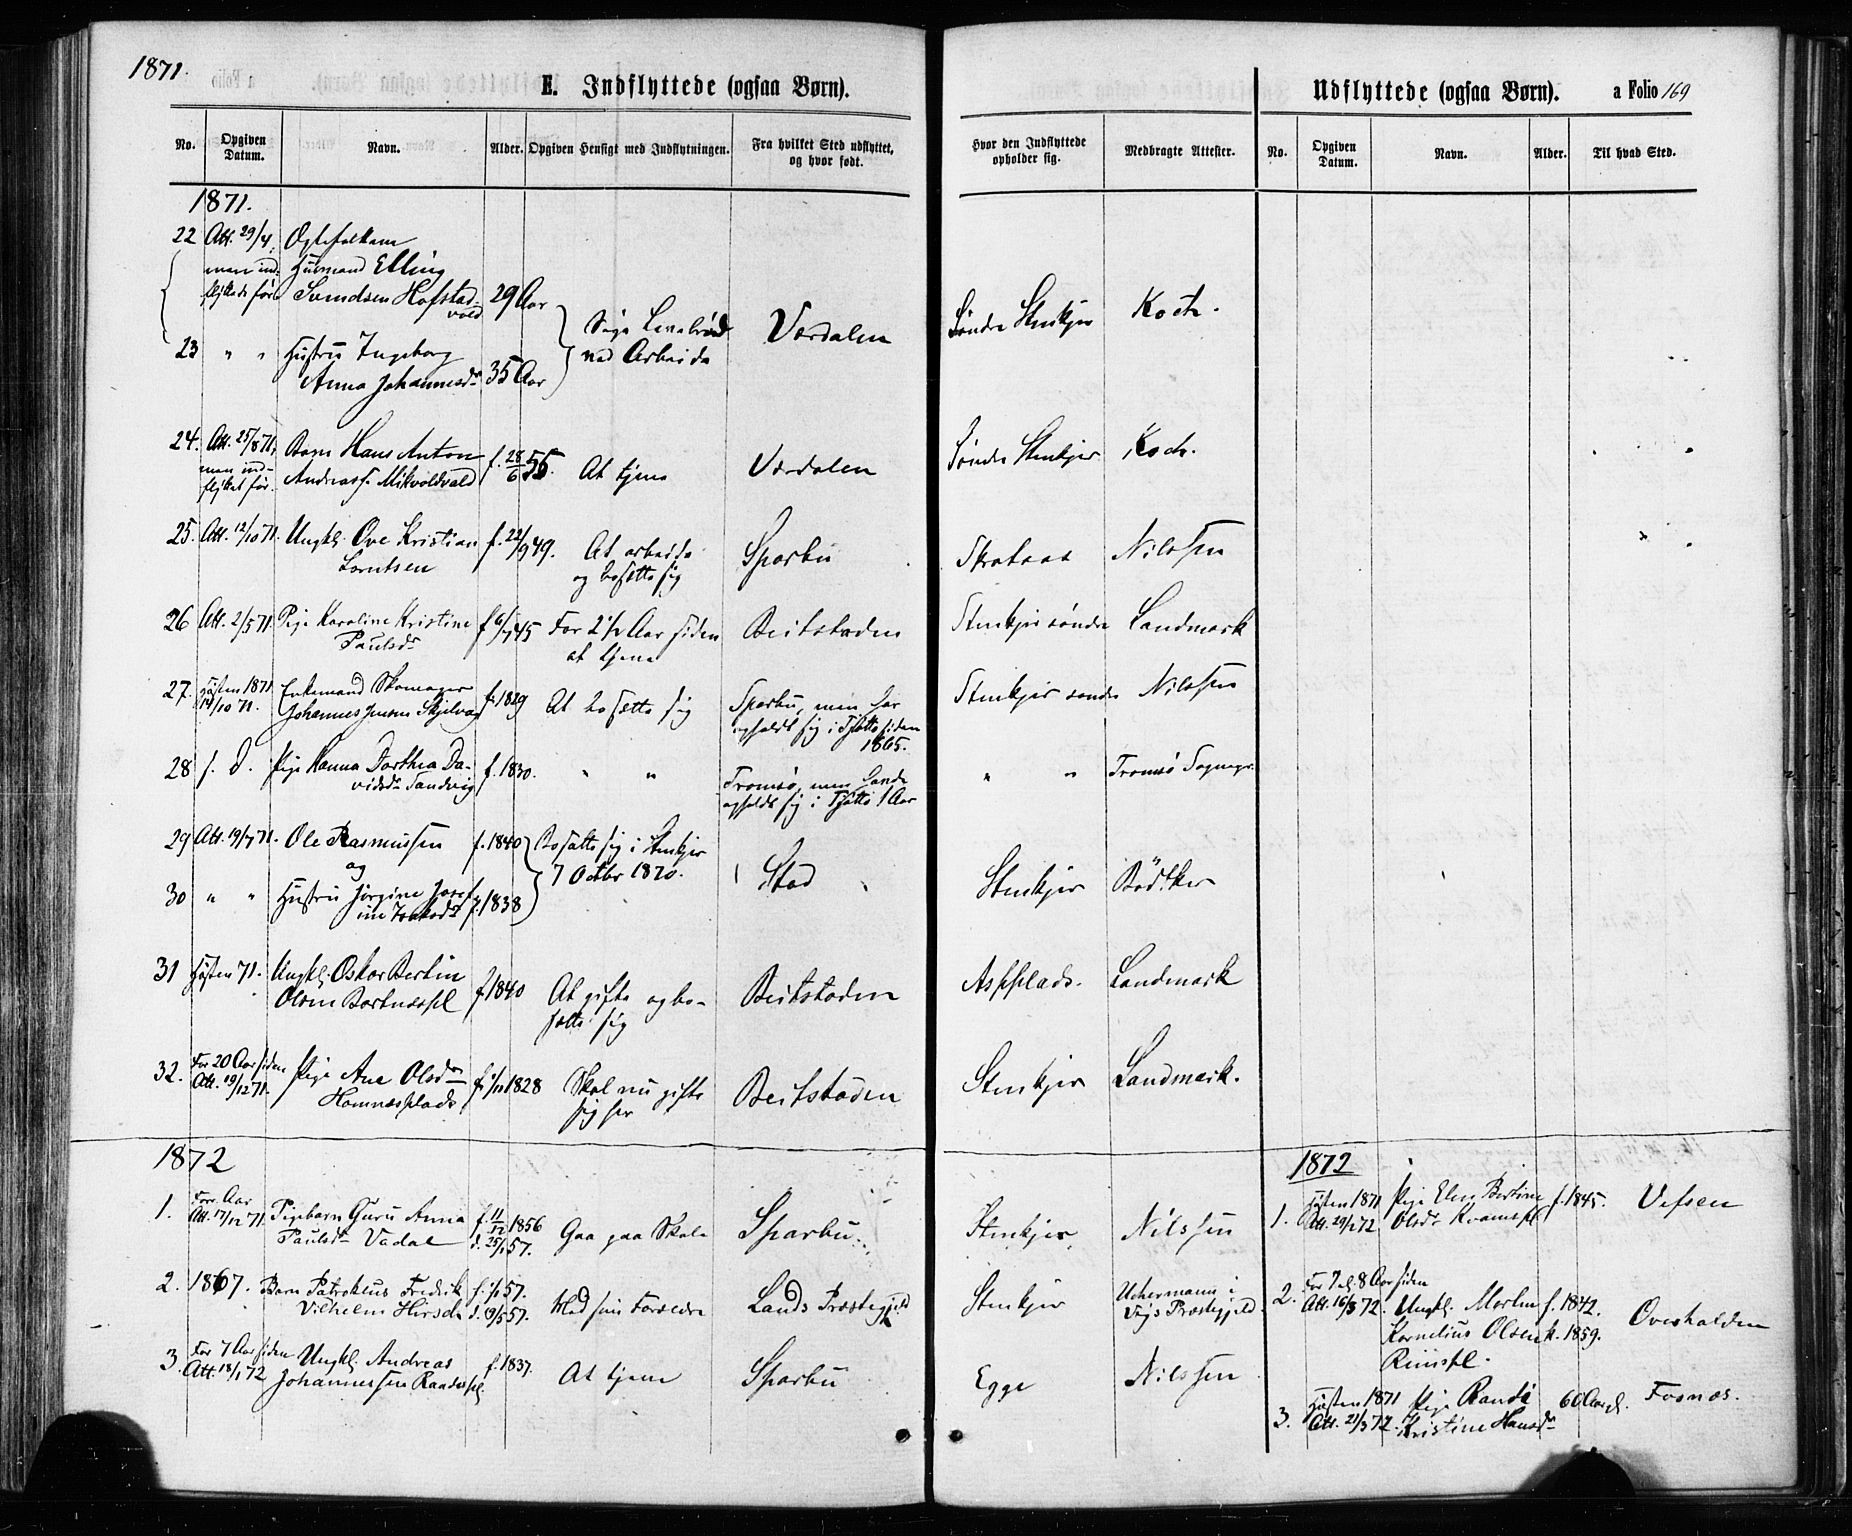 1871.
E. Indflyttede (ogsaa Børn).
Udflyttede (ogsaa Børn). a Folio 169
No. Opgiven Datum. Navn. Alder. Opgiven Hensigt med Indflytningen. Fra hvilket Sted udflyttet, og hvor født. Hvor den Indflyttede opholder sig. Medbragte Attester. No. Opgiven Datum. Navn. Alder. Til hvad Sted.
1871.
22 Att. 29/4, Ægtefolkene
men ind- Husmand Elling
flyttede før Svendsen Hofstad- 29 Aar
vald
Søge Levebrød Værdalen Søndre Stenkjer Koch.
23 " " Hustru Ingeborg ved Arbeide
Anna Johannesdr 35 Aar
24. Att. 25/8 71, Barn Hans Anton f. 28/6 55. At tjene Værdalen Søndre Stenkjer Koch.
men ind- Andreass. Mikvoldvald
flyttet før.
25. Att. 12/10 71. Ungkl. Ove Kristian f. 22/9 49. At arbeide Sparbu Nilssen
Lorntsen og bosætte sig
26 Att. 2/5 71. Pige Karoline Kristine f. 6/7 45 For 2 1/2 Aar siden Beitstaden Stenkjer søndre Landmark
Paulsdr at tjene
27. Høsten 1871 Enkemand Skomager f. 1829 At bosætte sig Sparbu, men har Stenkjer søndre Nilssen
14/10 71. Johannes Jensen Skjelvag opholdt sig i Tjøtta siden
1865.
28 s. D. Pige Hanna Dorthea Da- f. 1830. " " Tromsø, men havde " " Tromsø Sognepr.
vidsdr Sandvig opholdt sig i Tjøtta 1 Aar
29 Att. 19/7 71. Ole Rasmussen f. 1840 Bosatte sig i Stenkjer
og 7 Octbr 1870. Stod Stenkjer Bødtker
30 " " Hustru Jørgine Josef- f. 1838
ine
31 Høsten 71. Ungkl. Oskar Bertin f. 1840 At gifte og bo- Beitstaden Aspplads. Landmark
Olsen Bartnespl sætte sig
32. For 20 Aar siden Pige Ane Olsdr f. 1828 Skal nu gifte Beitstaden Stenkjer Landmark.
Att. 19/12 71. Homnesplads sig her
1872
1872
1. Forr. Aar Pigebarn Guru Anna f. 11/12 1856 Gaa paa Skole Sparbu Stenkjer Nilssen
Att. 17/12 71. Paulsdr Vadal d. 25/1 57.
1. Høsten 1871 Pige Elen Bertine f. 1845. Vefsen
Att. 29/1 72 Olsdr Kvamspl
2. 1867. Barn Patroklus Fredrik f. 57. Med sine Forældre Lands Præstegjeld Stenkjer Uchermann i
Vilhelm Hirsch d. 19/5 57. Præstegjeld.
2. For 7 el. 8 Aar siden
Att. 16/3 72. Ungkl. Morten f. 1842. Overhalden
Kornelius Olsen k. 1859.
3. For 7 Aar siden Ungkl. Andreas f. 1837. At tjene Sparbu Egge Nilssen
Att. 18/1 72 Johannessen
3. Høsten 1871 Pige Randi 60 Aar gl. Fosnæs.
Att. 21/3 72. Kristine Hansdr